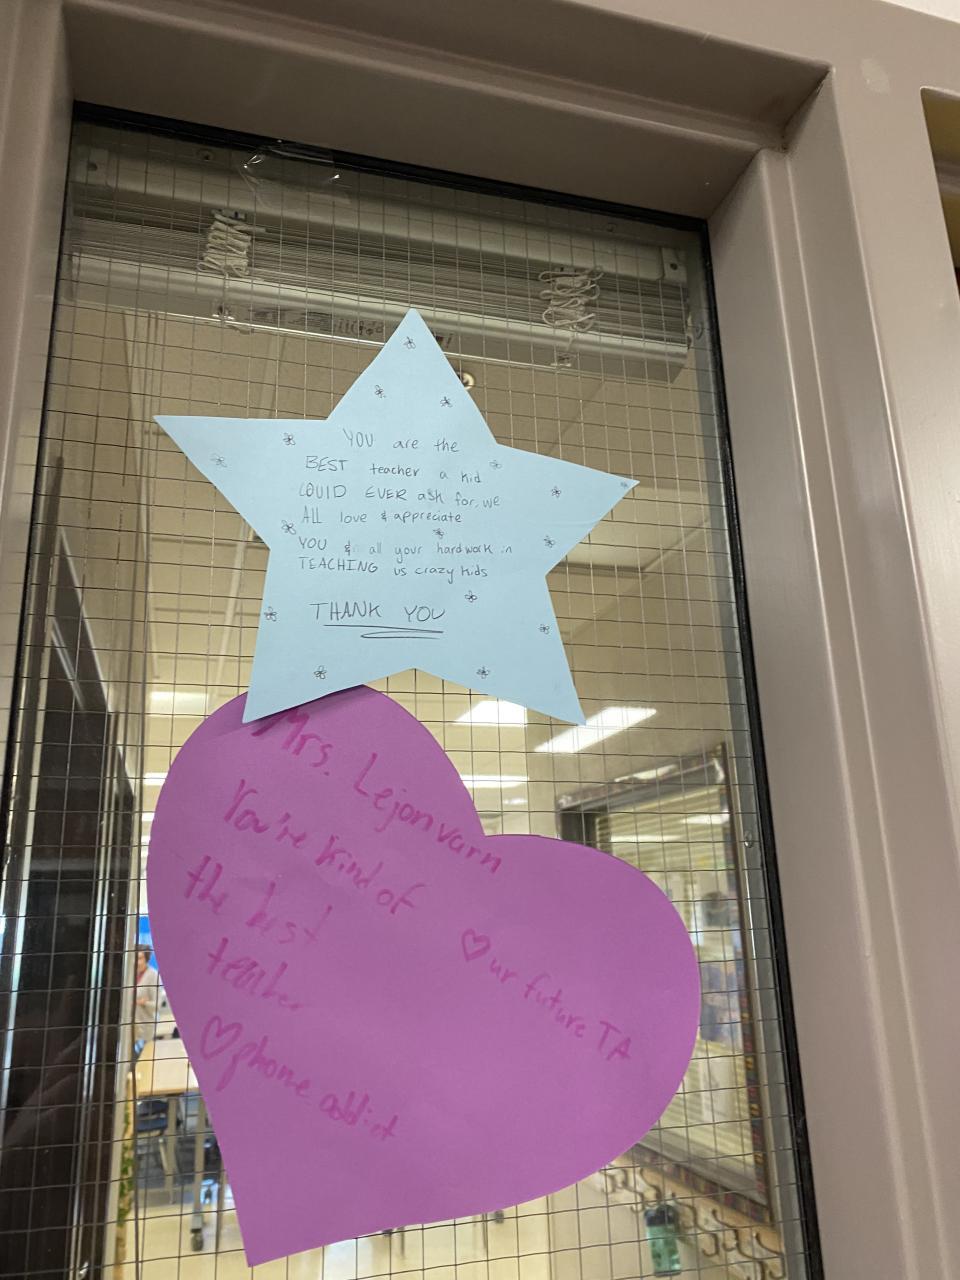 YOU are the
BEST teacher a kid
COUlD EVER ask for, we
ALL love & appreciate
YOU & all your hardwork in
TEACHING us crazy kids
THANK YOU
Mrs. Lejonvarn
You're kind of
the best
teacher
♡ phone addict
♡ ur future TA